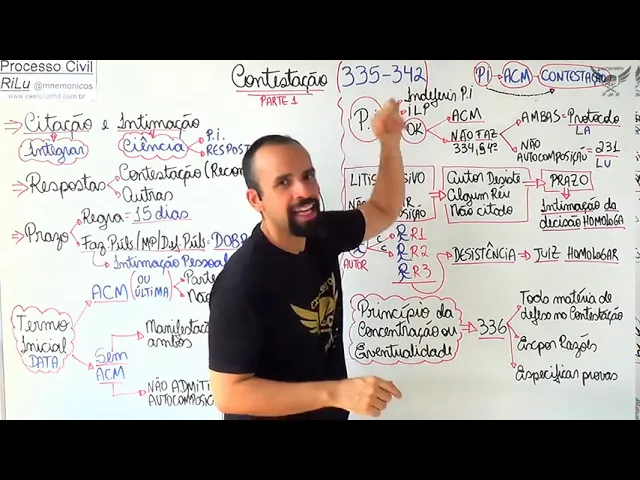 Processo Civil
RiLu @mnemonicos
Contestação
PARTE 1
335-342
Pi → ACM → CONTESTAÇÃO
⇒ Citação e Intimação
Integrar
Ciência
P.i.
⇒ Respostas
Contestação
Outras
⇒ Prazo
Regra - 15 dias
Faz. Púb/MP/Def. Púb =
Intimação Pessoal
Termo
Inicial
DATA
ACM
OU
ÚLTIMA
Sem
ACM
NÃO
P.i
Indeferir P.i
iLP
OK
ACM
NÃO FAZ
334, §4º
AMBAS = Protocolo
LA
NÃO
AUTOCOMPOSIÇÃO = 231
LU
AUTOR
C
C
R R1
R R2
R R3
Autor Desiste
Algum Réu
Não citado
PRAZO
Intimação da
decisão HOMOLOGA
DESISTÊNCIA → JUIZ HOMOLOGAR
Princípio da
Concentração ou
Eventualidade
336
Toda matéria de
defesa na Contestação
Expor Razões
Especificar provas